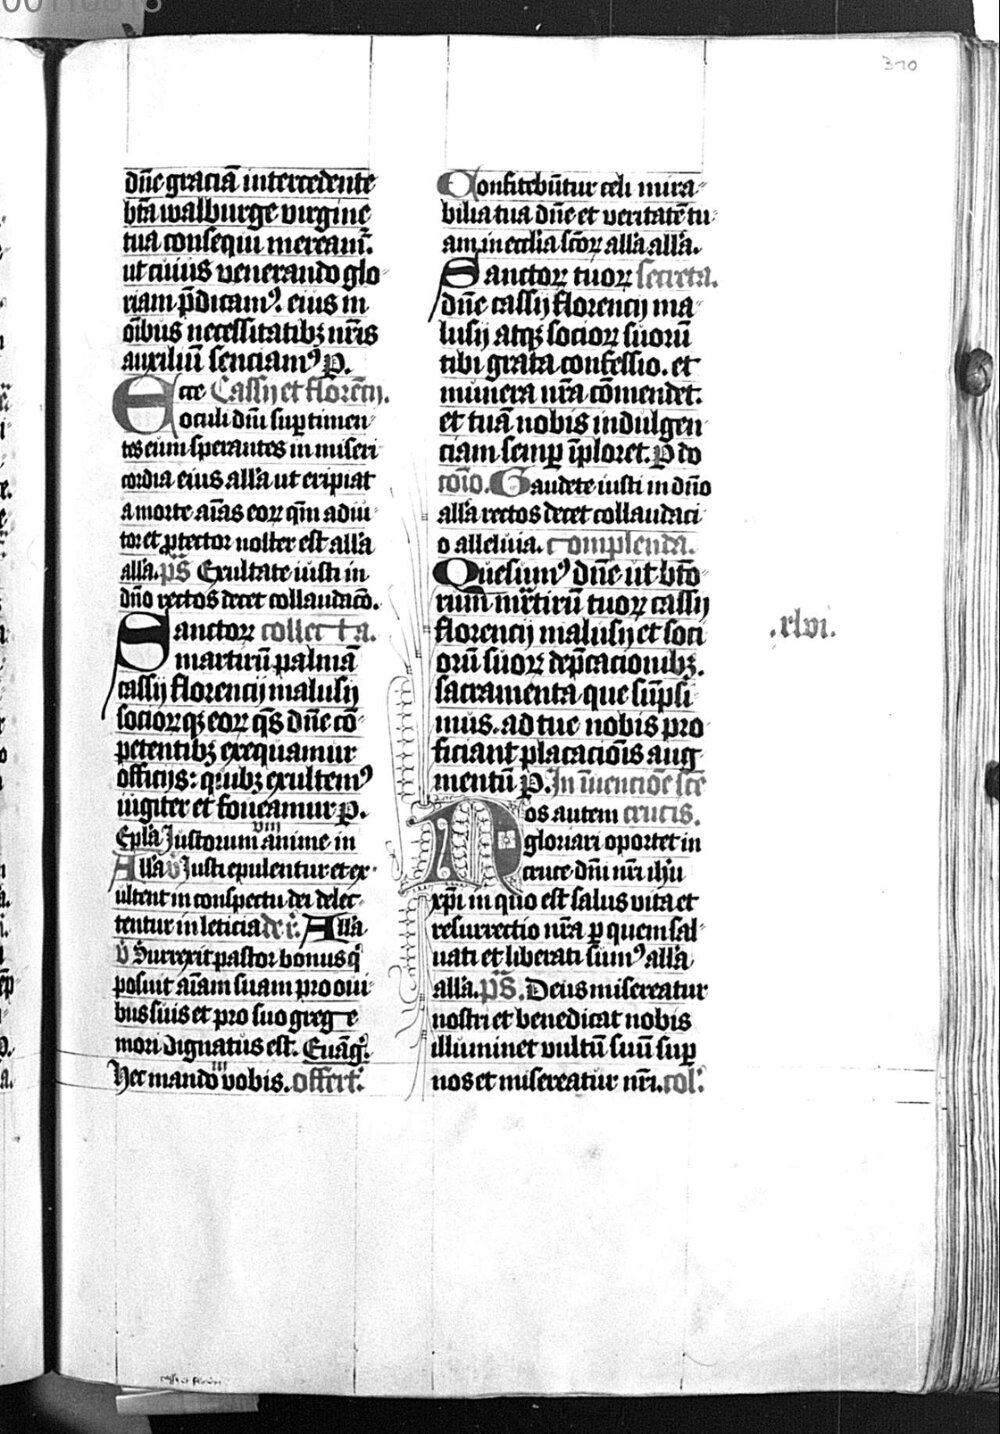 310
dn̄e graciā intercedente
bt̄a walburge virgine
tua consequi mereamᷣ.
ut cuius venerando glo
riam p̄dicamꝰ. eius in
oībus necessitatibꝫ nr̄is
auxiliū senciamꝰ P.
Ecce Cassij et florēcij.
oculi dn̄i sup timen
tes eum sperantes in miseri
cordia eius all'a ut eripiat
a morte aīas eoꝝ qm̄ adiu
tor et ꝓtector noster est all'a
all'a. pS̄ Exultate iusti in
dn̄o rectos decet collaudacō.
Sanctoꝝ collecta.
martirū palmā
cassij florencij malusij
socioꝝqꝫ eoꝝ qs̄ dn̄e cō
petentibꝫ exequamur
officijs: quibꝫ exultemꝰ
iugiter et foueamur P.
Epl'a Justorum anime in
All'a v̄ Justi epulentur et ex
ultent in conspectu dei delec
tentur in leticia de r. All'a
v̄ Surrexit pastor bonus q
posuit aīam suam pro oui
bus suis et pro suo grege
mori dignatus est. Euāg.
Hec mando vobis. offert.
Confitebūtur celi mira
bilia tua dn̄e et veritatē tu
am in ecclīa scōꝝ all'a all'a.
Sanctoꝝ tuoꝝ secreta.
dn̄e cassij florencij ma
lusij atqꝫ socioꝝ suorū
tibi grata confessio. et
munera nr̄a cōmendet.
et tuā nobis indulgen
ciam semꝑ īploret. P do
cōīo. Gaudete iusti in dn̄o
all'a rectos decet collaudaci
o alleluia. Complenda.
Quesumꝰ dn̄e ut bt̄o
rum mr̄tirū tuoꝝ cassij
florencij malusij et soci
orū suoꝝ dep̄cacionibꝫ.
sacramenta que sūpsi
mus. ad tue nobis pro
ficiant placacōis aug
mentū P. In īuencōe scē
Nos autem crucis.
gloriari oportet in
cruce dn̄i nr̄i ihū
xp̄i in quo est salus vita et
resurrectio nr̄a ꝑ quem sal
uati et liberati sumꝰ all'a
all'a. pS̄. Deus misereatur
nostri et benedicat nobis
illuminet vultū suū sup
nos et misereatur nr̄i. col'.
.xlvi.